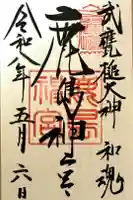 武甕槌大神 和魂
鹿島神宮
令和八年五月六日